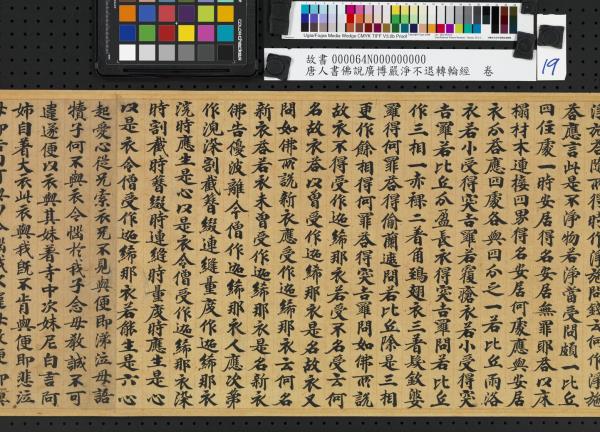 Ugra/Fogra Media Wedge CMYK TIFF V3.0b Proof
故書 000064N000000000
唐人書佛說廣博嚴淨不退轉輪經 卷
19
答應言此是不淨物若淨當受問頗一比丘
四住處一時安居得名安居無罪耶答以床
榻材木連接四界得名安居何處應與安居
衣分答應四處各與四分之一若比丘雨浴
衣若小受得突吉羅若覆瘡衣若小受得突
吉羅若比丘不盈長衣得突吉羅問若比丘
作三相一赤裸二著角鵄翅衣三著髮欽婆
羅得何罪答得偷蘭遮問若比丘除是三相
更作餘相得何罪答得突吉羅問如佛所說
故衣不得受作迦絺那衣若受不名受云何
名故衣答以曾受作迦絺那衣是名故衣又
問如佛所說新衣應受作迦絺那衣云何名
新衣答若衣未曾受作迦絺那衣是名新衣
佛告優波離令僧作迦絺那衣人應次第
作浣染割截簪綴連縫量度作迦絺那衣
浣時應生是心以是衣令僧受作迦絺那衣染
時割截時簪綴時連縫時量度時應生是心
以是衣令僧受作迦絺那衣若能生是六心
起愛心從兄索衣兄不見與便即涕泣母語
犢子何不與衣令惱於我子念母教誡不可
違遂便以衣與其妹著寺中次妹尼白言阿
姊自着大衣此衣與我既不肯與便即悲泣